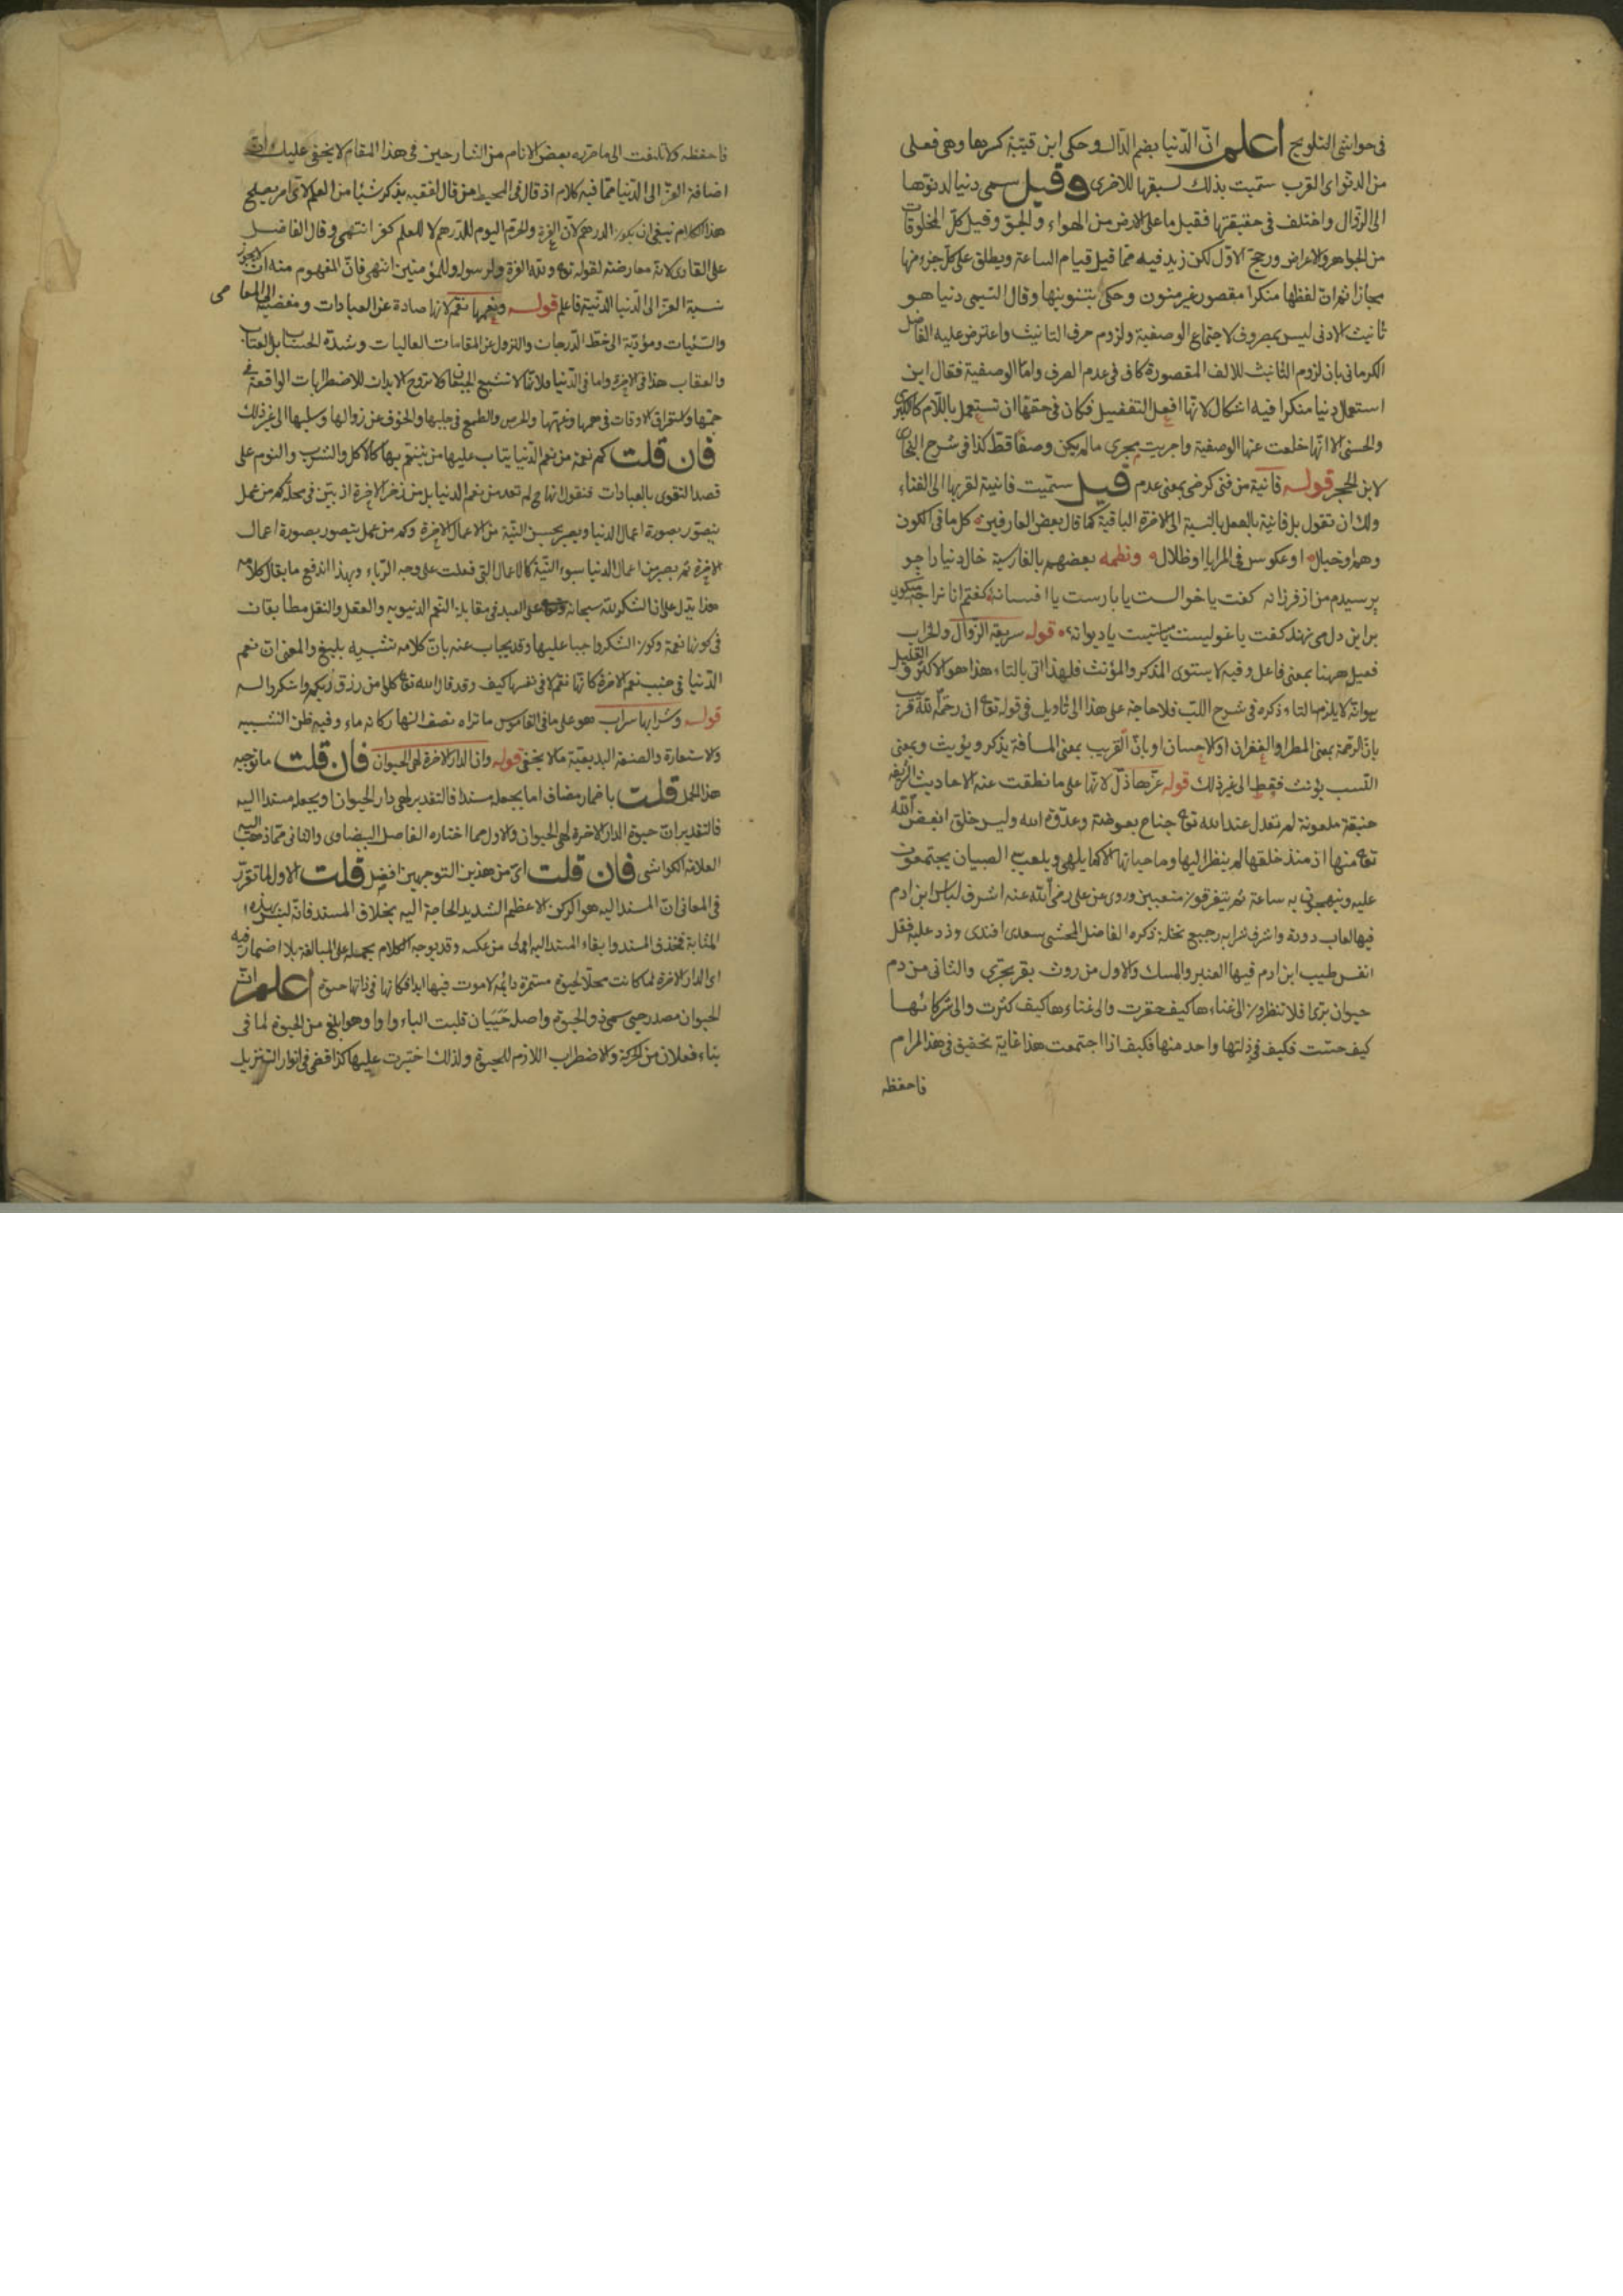 فى حواشى التلويح اعلم انّ الدّنيا بضم الدّال وحكى ابن قتيبة كسرها وهى فعلى
من الدنوّ اى القرب سمّيت بذلك لسبقها للاخرى وقيل سمى دنيا لدنوّها
الى الزّوال واختلف فى حقيقتها فقيل ما على الارض من الهواء والجوّ وقيل كلّ المخلوقات
من الجواهر والاعراض ورجح الاوّل لكن زيد فيه ممّا قيل قيام الساعة ويطلق على كلّ جزء منها
مجازا ثم انّ لفظها منكرا مقصور غير منون وحكى تنوينها وقال التيمى دنيا هو
تانيث الادنى ليس بمصروف لاجتماع الوصفية ولزوم حرف التانيث واعترض عليه الفاضل
الكرمانى بان لزوم التانيث للالف المقصورة كاف فى عدم الصرف وامّا الوصفية فقال ابن
استعمال دنيا منكرا فيه اشكال لانّها افعل التفضيل فكان فى حقها ان تستعمل باللّام كالكبرى
والحسنى الا انّها خلعت عنها الوصفية واجريت مجرى مالم يكن وصفا قطّ كذا فى شرح البخارى
لابن الحجر قوله فانية من فنى كرضى بمعنى عدم قيل سمّيت فانية لقربها الى الفناء
ولك ان تقول بل فانية بالفعل بالنسبة الى الاخرة الباقية كما قال بعض العارفين كل ما فى الكون
وهم او خيال او عكوس فى المرايا او ظلال ونظمه بعضهم بالفارسية حال دنيا را چو
پرسيدم من از فرزانه كفت يا خوابست يا بادست يا افسانه كفتم انا نرا چه ميكوى
بر اين دل مى نهند كفت يا غوليست يا مستيست يا ديوانه قوله سريعة الزّوال والخراب
فعيل ههنا بمعنى فاعل وفيه لا يستوى المذكر والمؤنث فلهذا اتى بالتاء هذا هو الاكثر و القليل
بانّ الرّحمة بمعنى المطر او الغفران او الاحسان او بانّ القريب بمعنى المسافة يذكر ويؤنث وبمعنى
النّسب يؤنث فقط الى غير ذلك قوله عزّها ذلّ لانّها على ما نطقت عنه الاحاديث الشريفة
ملعونة لم تعدل عند الله تع جناح بعوضة وعدوّة الله وليس خلق ابغض الله
تع منها اذ منذ خلقها لم ينظر اليها وما حياتها الا كما يلهى ويلعب الصبيان يجتمعون
عليه ويبهجون به ساعة ثم يتفرقون متعبين وروى عن على رضى الله عنه اشرف لباس ابن ادم
فيها لعاب دودة واشرف شرابه رجيع نحلة ذكره الفاضل المحشى سعدى افندى وزد عليه فقل
انفس طيب ابن ادم فيها العنبر والمسك والاول من روث بقر بحرى والثانى من دم
حيوان برى فلا تنظرون الى غناءها كيف حقرت والى عناءها كيف كثرت والى شركائها
كيف خست فكيف فى ذلتها واحد منها فكيف اذا اجتمعت هذا غاية تحقيق فى هذا المرام
فاحفظه
فاحفظه ولا تلتفت الى ما حرّره بعض الانام من الشارحين فى هذا المقام لا يخفى عليك انّ
اضافة العزّ الى الدّنيا ممّا فيه كلام اذ قال فى المحيط من قال لفقيه يذكر شيئا من العلم لاىّ امر يصلح
هذا الكلام ينبغى ان يكون الدرهم لانّ العزّة والحرمة اليوم للدّرهم لا للعلم كفر انتهى وقال الفاضل
على القارى لانّه معارضة لقوله تع ولله العزّة ولرسوله وللمؤمنين انتهى فانّ المفهوم منه انّ لا يجوز
نسبة العزّ الى الدّنيا الدّنيّة فاعلم قوله ونعيمها نقم لانها صادة عن العبادات ومفضية الى المعاصى
والسّيئات ومؤدّية الى حطّ الدّرجات والنزول عن المقامات العاليات وشدّة الحساب بل العتاب
والعقاب هذا فى الاخرة واما فى الدّنيا فلانّها لا تشبع لا تروح الابدان للاضطرابات الواقعة فى
جمعها واستغراق الاوقات فى والحرص والطمع فى جلبها والخوف عن زوالها وسلبها الى غير ذلك
فان قلت كم نعمة من نعم الدّنيا يثاب عليها من يتنعّم بها كالاكل والشرب والنوم على
قصد التقوى بالعبادات فنقول انها ح لم تعد من نعم الدنيا بل من ذخر الاخرة اذ بيّن فى محله كم من عمل
يتصوّر بصورة اعمال الدنيا ويصير بحسن النيّة من الاعمال الاخرة وكم من عمل يتصور بصورة اعمال
الاخرة ثم يصير من اعمال الدنيا بسوء النيّة كالاعمال التى فعلت على وجه الرياء وبهذا اندفع ما يقال كلامه
هذا يدلّ على ان الشكر لله سبحانه على العبد فى مقابلة النعم الدنيوية والعقل والنقل مطابقان
فى كونها نعمة وكون الشكر واجبا عليها وقد يجاب عنه بانّ كلامه تشبيه بليغ والمعنى انّ نعم
الدّنيا فى جنب نعم الاخرة كانّها نقم لا فى نفسها كيف وقد قال الله تع كلوا من رزق ربكم واشكروا له
قوله وشرابها سراب هو على ما فى القاموس ما تراه نصف النهار كانه ماء وفيه من التشبيه
والاستعارة والصنعة البديعيّة ما لا يخفى قوله وان الدار الاخرة لهى الحيوان فان قلت ما توجيه
هذا الحمل قلت باضمار مضاف اما بجعله مسندا فالتقدير لهى دار الحيوان او بجعله مسندا اليه
فالتقدير انّ حيوة الدار الاخرة لهى الحيوان والاول مما اختاره الفاضل البيضاوى والثانى ممّا ذهب اليه
العلامة الكواشى فان قلت اىّ من هذين التوجيهين افضل قلت الاول لما تقرّر
فى المعانى انّ المسند اليه هو الركن الاعظم الشديد الحاجة اليه بخلاف المسند فانّه ليس بهذه
المثابة فحذف المسند وابقاء المسند اليه اولى من عكسه وقد يوجه الكلام بحمله على المبالغة بلا اضمار فيه
اى الدار الاخرة لما كانت محلّا لحيوة مستمرة دائمة لا موت فيها ابدا فكانها فى ذاتها حيوة اعلم انّ
الحيوان مصدر حيى سمى ذو الحيوة واصله حَيَيَان قلبت الياء واوا وهو ابلغ من الحيوة لما فى
بناء فعلان من الحركة والاضطراب اللازم للحيوة ولذلك اختيرت عليها كذا فى انوار التنزيل